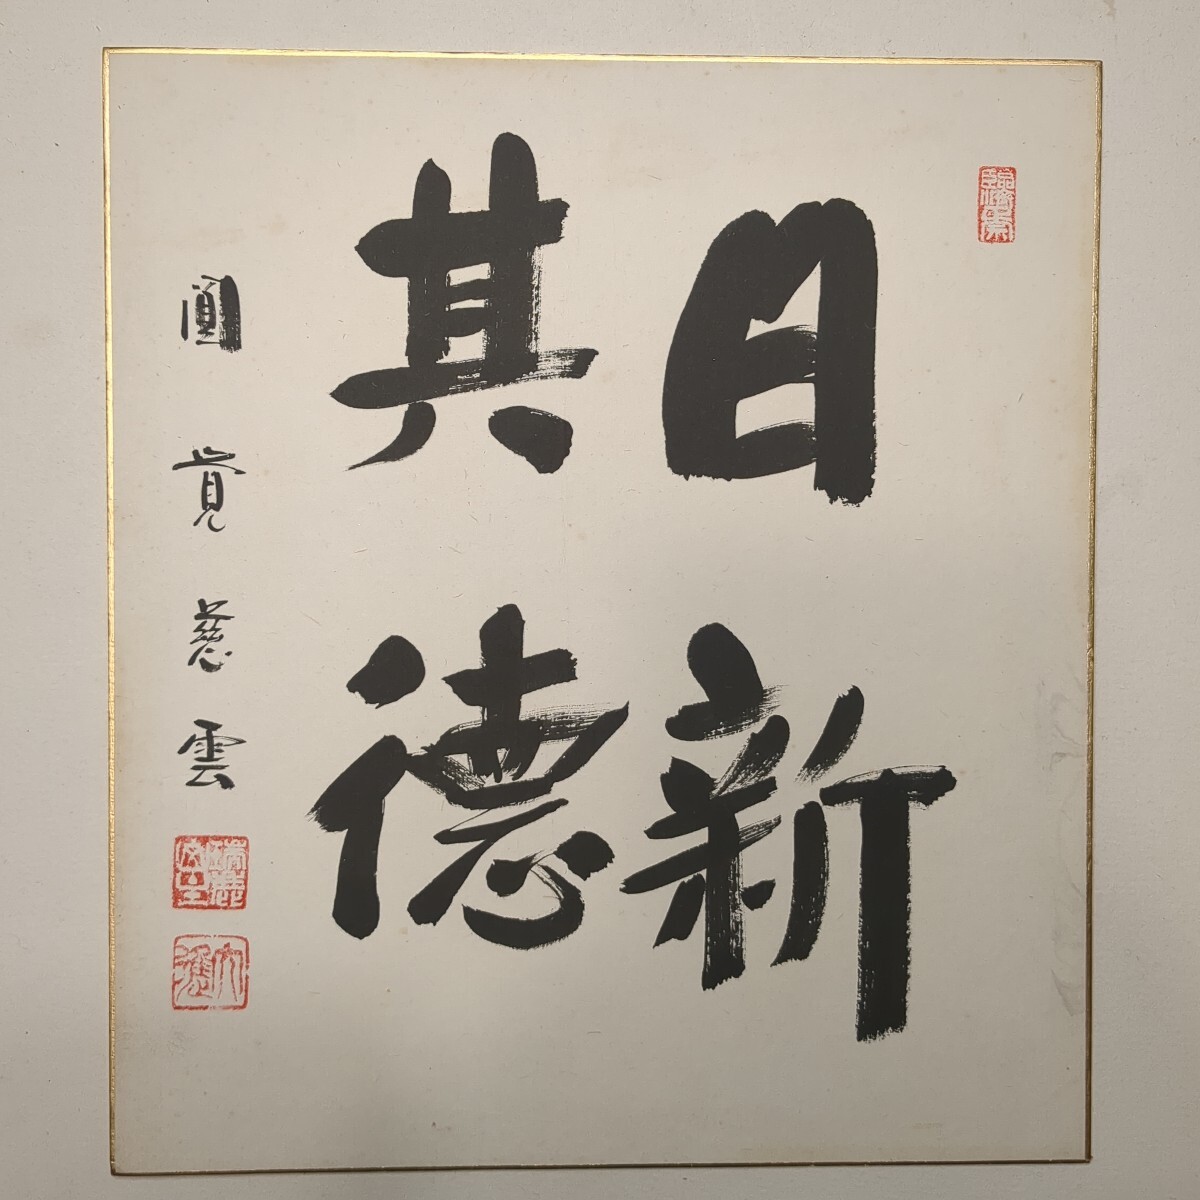 日新
其德
圓覚慈雲